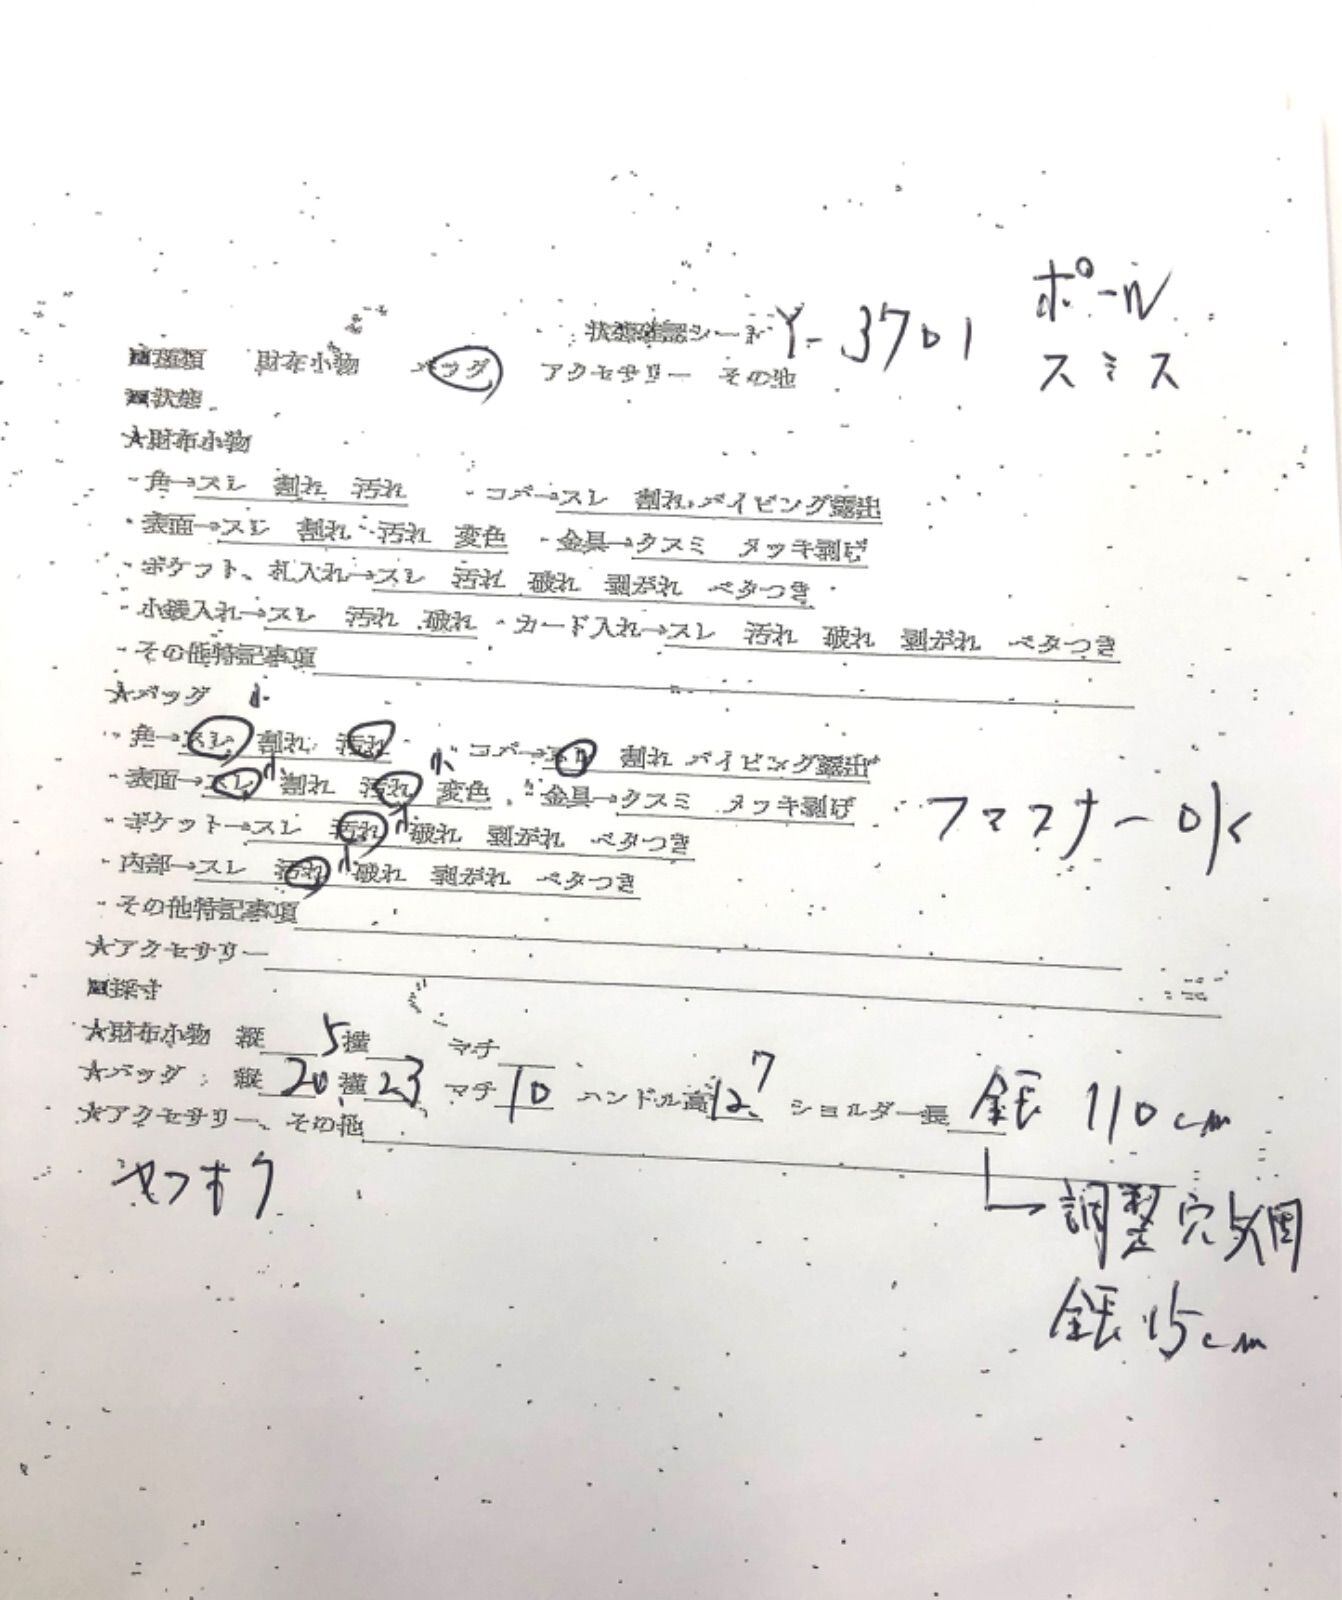 状態確認シート Y-3701 ポール
スミス
■種類 財布小物 バッグ アクセサリー その他
■状態
★財布小物
・角→スレ 割れ 汚れ ・コバ→スレ 割れ パイピング露出
・表面→スレ 割れ 汚れ 変色 ・金具→クスミ メッキ剥げ
・ポケット、札入れ→スレ 汚れ 破れ 剥がれ ベタつき
・小銭入れ→スレ 汚れ 破れ ・カード入れ→スレ 汚れ 破れ 剥がれ ベタつき
・その他特記事項
★バッグ 小
・角→スレ 割れ 汚れ 小 ・コバ→スレ 割れ パイピング露出
・表面→スレ 小 割れ 汚れ 小 変色 ・金具→クスミ メッキ剥げ ファスナーOK
・ポケット→スレ 汚れ 小 破れ 剥がれ ベタつき
・内部→スレ 汚れ 小 破れ 剥がれ ベタつき
・その他特記事項
★アクセサリー
■採寸
★財布小物 縦 横 マチ
★バッグ 縦 20.5 横 23 マチ 10 ハンドル高 12.7 ショルダー長 全長 110cm
★アクセサリー、その他
ヤフオク
調整穴
全長 15cm